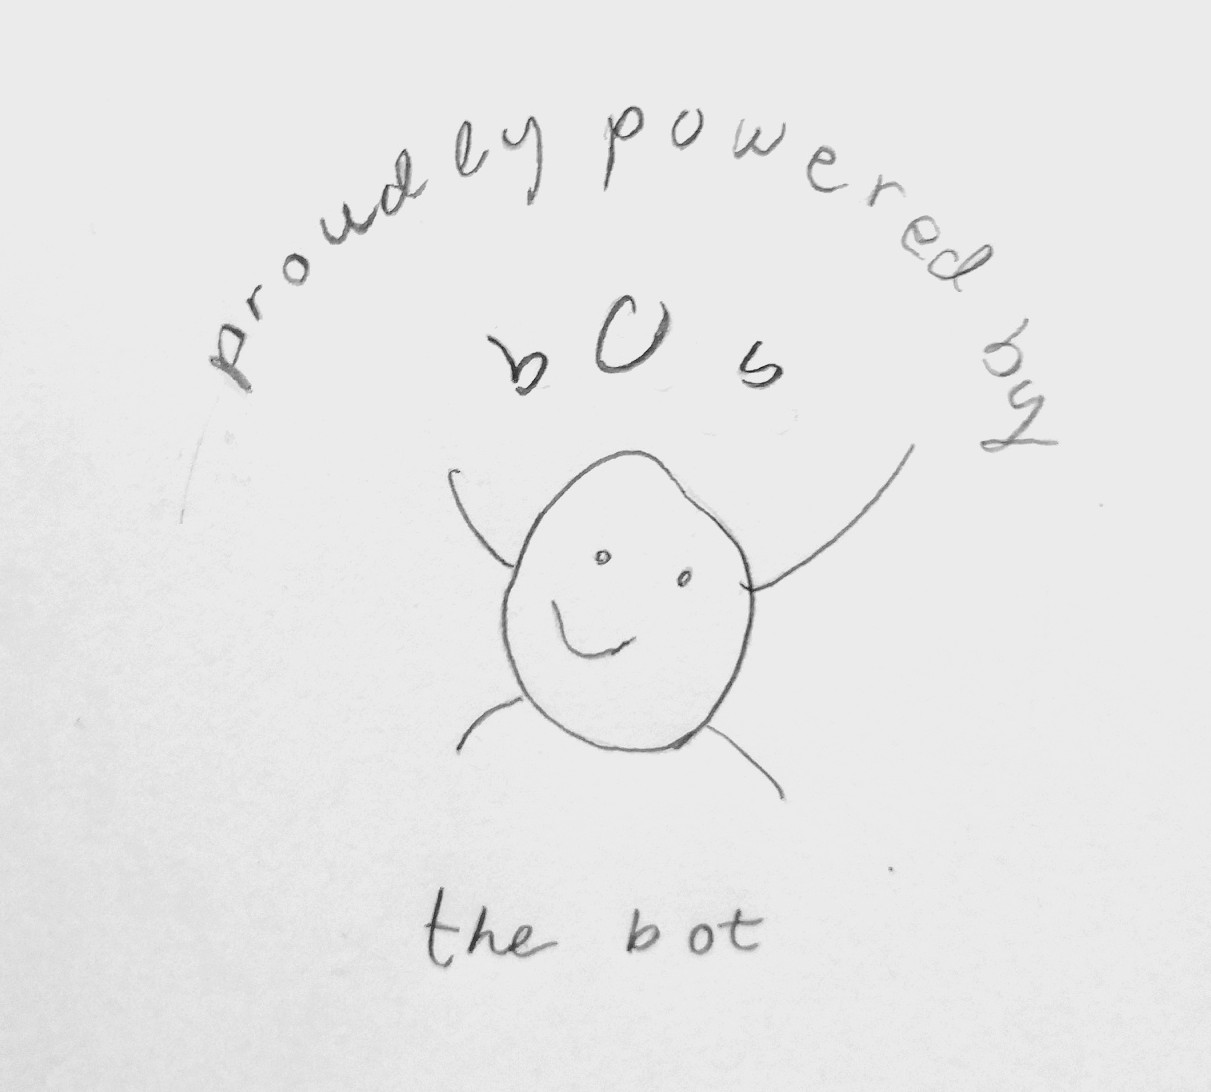 proudly powered by
bos
the bot